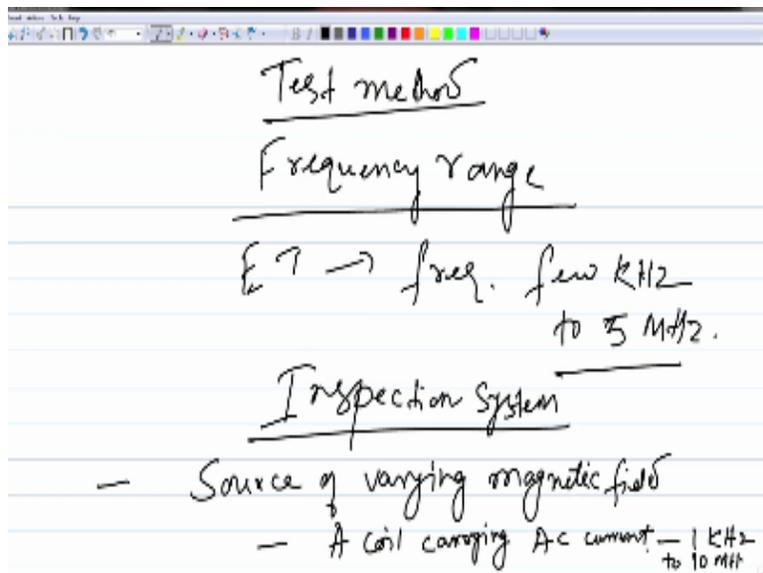 Test method
Frequency range
ET → freq. few KHz
to 5 MHz.
Inspection System
— Source of varying magnetic field
— A coil carrying AC current — 1 KHz
to 10 MH